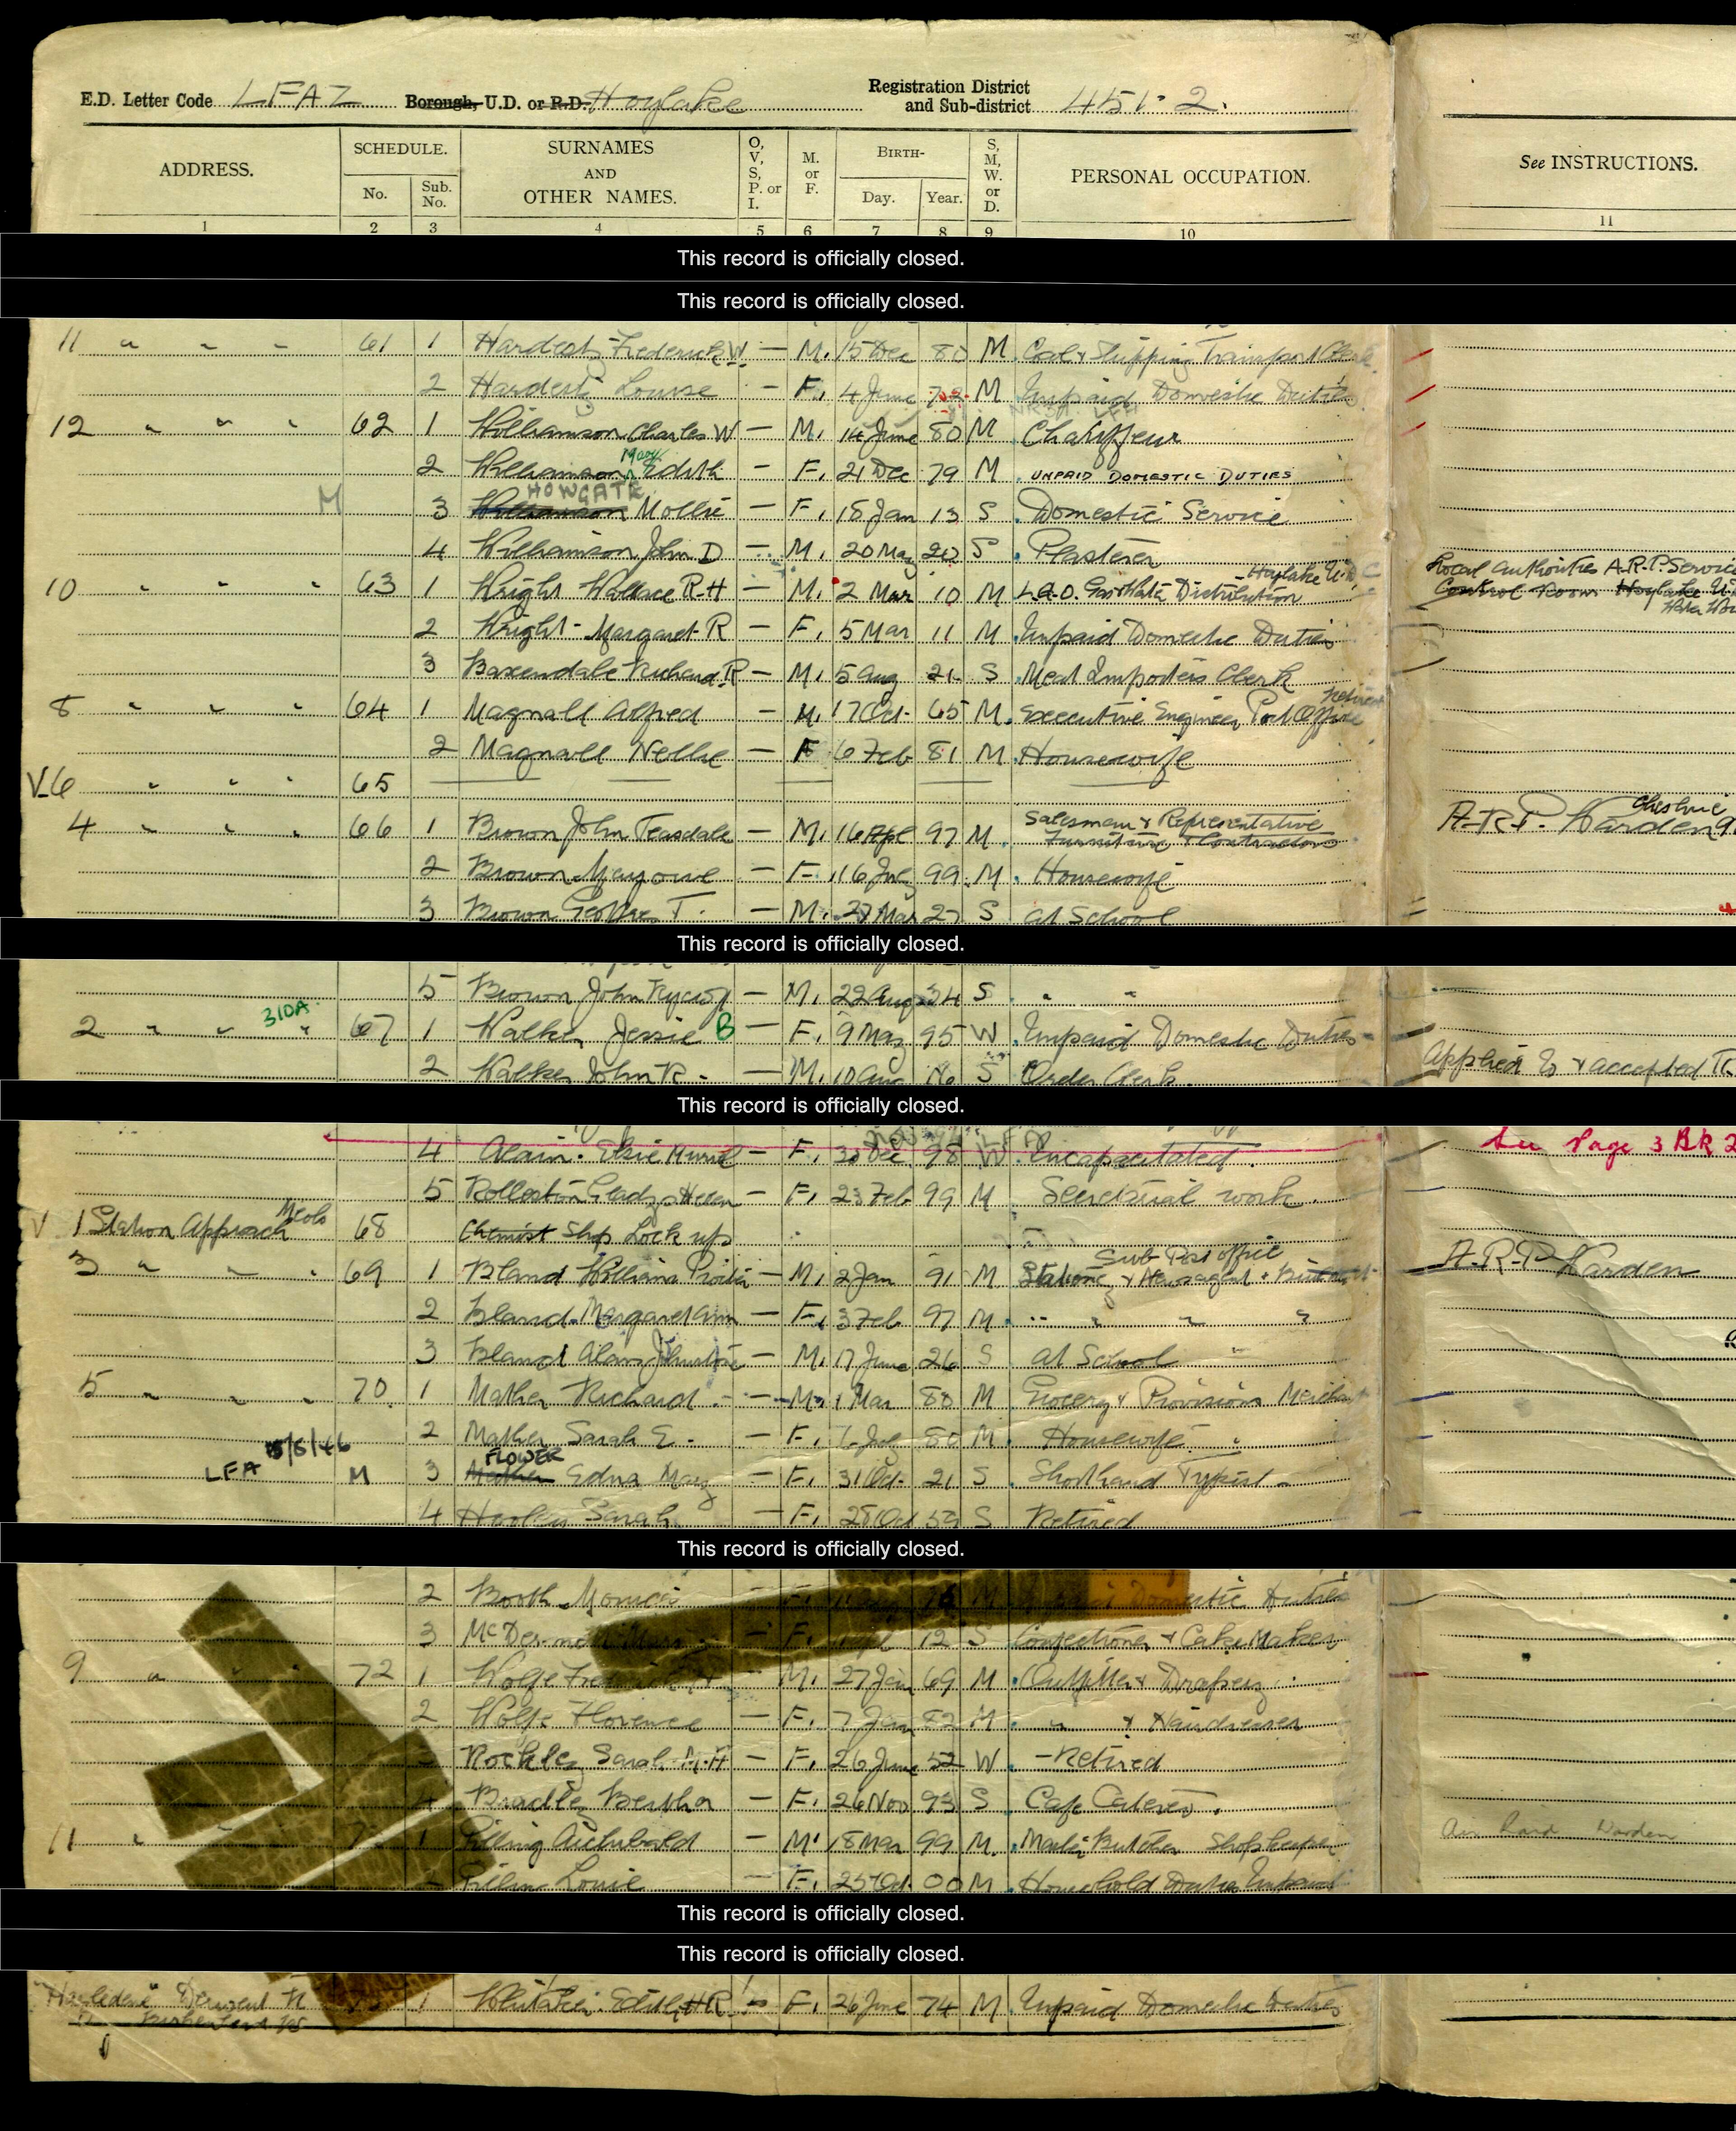 E.D. Letter Code LFAZ Borough, U.D. or R.D. Hoylake Registration District and Sub-district 451·2.
ADDRESS. SCHEDULE. No. Sub. No. SURNAMES AND OTHER NAMES. O, V, S, P. or I. M. or F. BIRTH- Day. Year. S, M, W. or D. PERSONAL OCCUPATION. See INSTRUCTIONS.
1 2 3 4 5 6 7 8 9 10 11
This record is officially closed.
This record is officially closed.
11 " " " 61 1 Hardesty Frederick W. — M. 15 Dec 80 M Coal & Shipping Transport Clerk
2 Hardesty Louise — F. 4 June M Unpaid Domestic Duties
12 " " " 62 1 Williamson Charles W — M. 14 June 80 M Chauffeur
2 Williamson Mary Edith — F. 21 Dec 79 M UNPAID DOMESTIC DUTIES
M HOWGATE
3 Williamson Mollie — F. 18 Jan 13 S Domestic Service
4 Williamson John D — M. 20 May 20 S Plasterer
10 " " " 63 1 Wright Wallace R.H — M. 2 Mar 10 M Gas & Water Distribution - Hoylake U.D.C Local Authorities A.R.P. Service Control Room Hoylake
2 Wright Margaret R — F. 5 Mar 11 M Unpaid Domestic Duties
3 Baxendale Richard R — M. 5 Aug 21 S Meat Importers Clerk
8 " " " 64 1 Magnall Alfred — M. 17 Oct 65 M. Executive Engineer, Post Office retired
2 Magnall Nellie — F 6 Feb 81 M Housewife
V 6 " " " 65
4 " " " 66 1 Brown John Teasdale — M. 16 Apl 97 M. Salesman & Representative Furniture Contractors A.R.P. Warden Cheshire
2 Brown Marjorie — F. 16 Jul 99 M. Housewife
3 Brown Geoffrey T. — M. 27 Mar 27 S at School
This record is officially closed.
5 Brown John Rycroft — M. 22 Aug 34 S " "
2 " " " 310A 67 1 Walker Jessie B — F. 9 May 95 W Unpaid Domestic Duties
2 Walker John R. — M. 10 Aug 16 S Order Clerk. Applied to & accepted
This record is officially closed.
4 Alain. Elsie Muriel — F. 30 Dec 98 W. Incapacitated. See Page 3 BK 2
5 Rolleston Gladys Helen — F. 23 Feb 99 M Secretarial work.
V 1 Station Approach Meols 68 Chemist Shop Lock up
3 " " " 69 1 Bland William — M. 2 Jan 91 M Sub Post office Stationer & Newsagent A.R.P Warden
2 Bland. Margaret Ann — F. 3 Feb 97 M " " " "
3 Bland Alan Johnstone — M. 17 June 26 S at School
5 " " " 70 1 Mather Richard — M. 1 Mar 80 M Grocery & Provision Merchant
2 Mather Sarah E. — F. 7 July 80 M. Housewife
LFA 15/5/46 M FLOWER
3 Mather Edna May — F. 31 Oct 21 S Shorthand Typist
4 Sarah — F. 28 Oct S Retired
This record is officially closed.
2 Booth Monica F. M Domestic Duties
3 McDermott F. 12 S Confectioner & Cake Maker
9 " " " 72 1 Wolfe M. 27 Jan 69 M Outfitter & Drapery
2 Wolfe Florence — F. 7 Jan 82 M " & Hairdresser
Rockley Sarah — F. 26 June 52 W - Retired
4 Bradley Bertha — F. 26 Nov 93 S Cafe Caterer.
11 " " 1 Pilling Archibald — M. 18 Mar 99 M. Butcher Shopkeeper Air Raid Warden
Pilling Louie — F. 25 Oct 00 M Household Duties Unpaid
This record is officially closed.
This record is officially closed.
Derwent 1 Edith R. F. 26 June 74 M Unpaid Domestic Duties